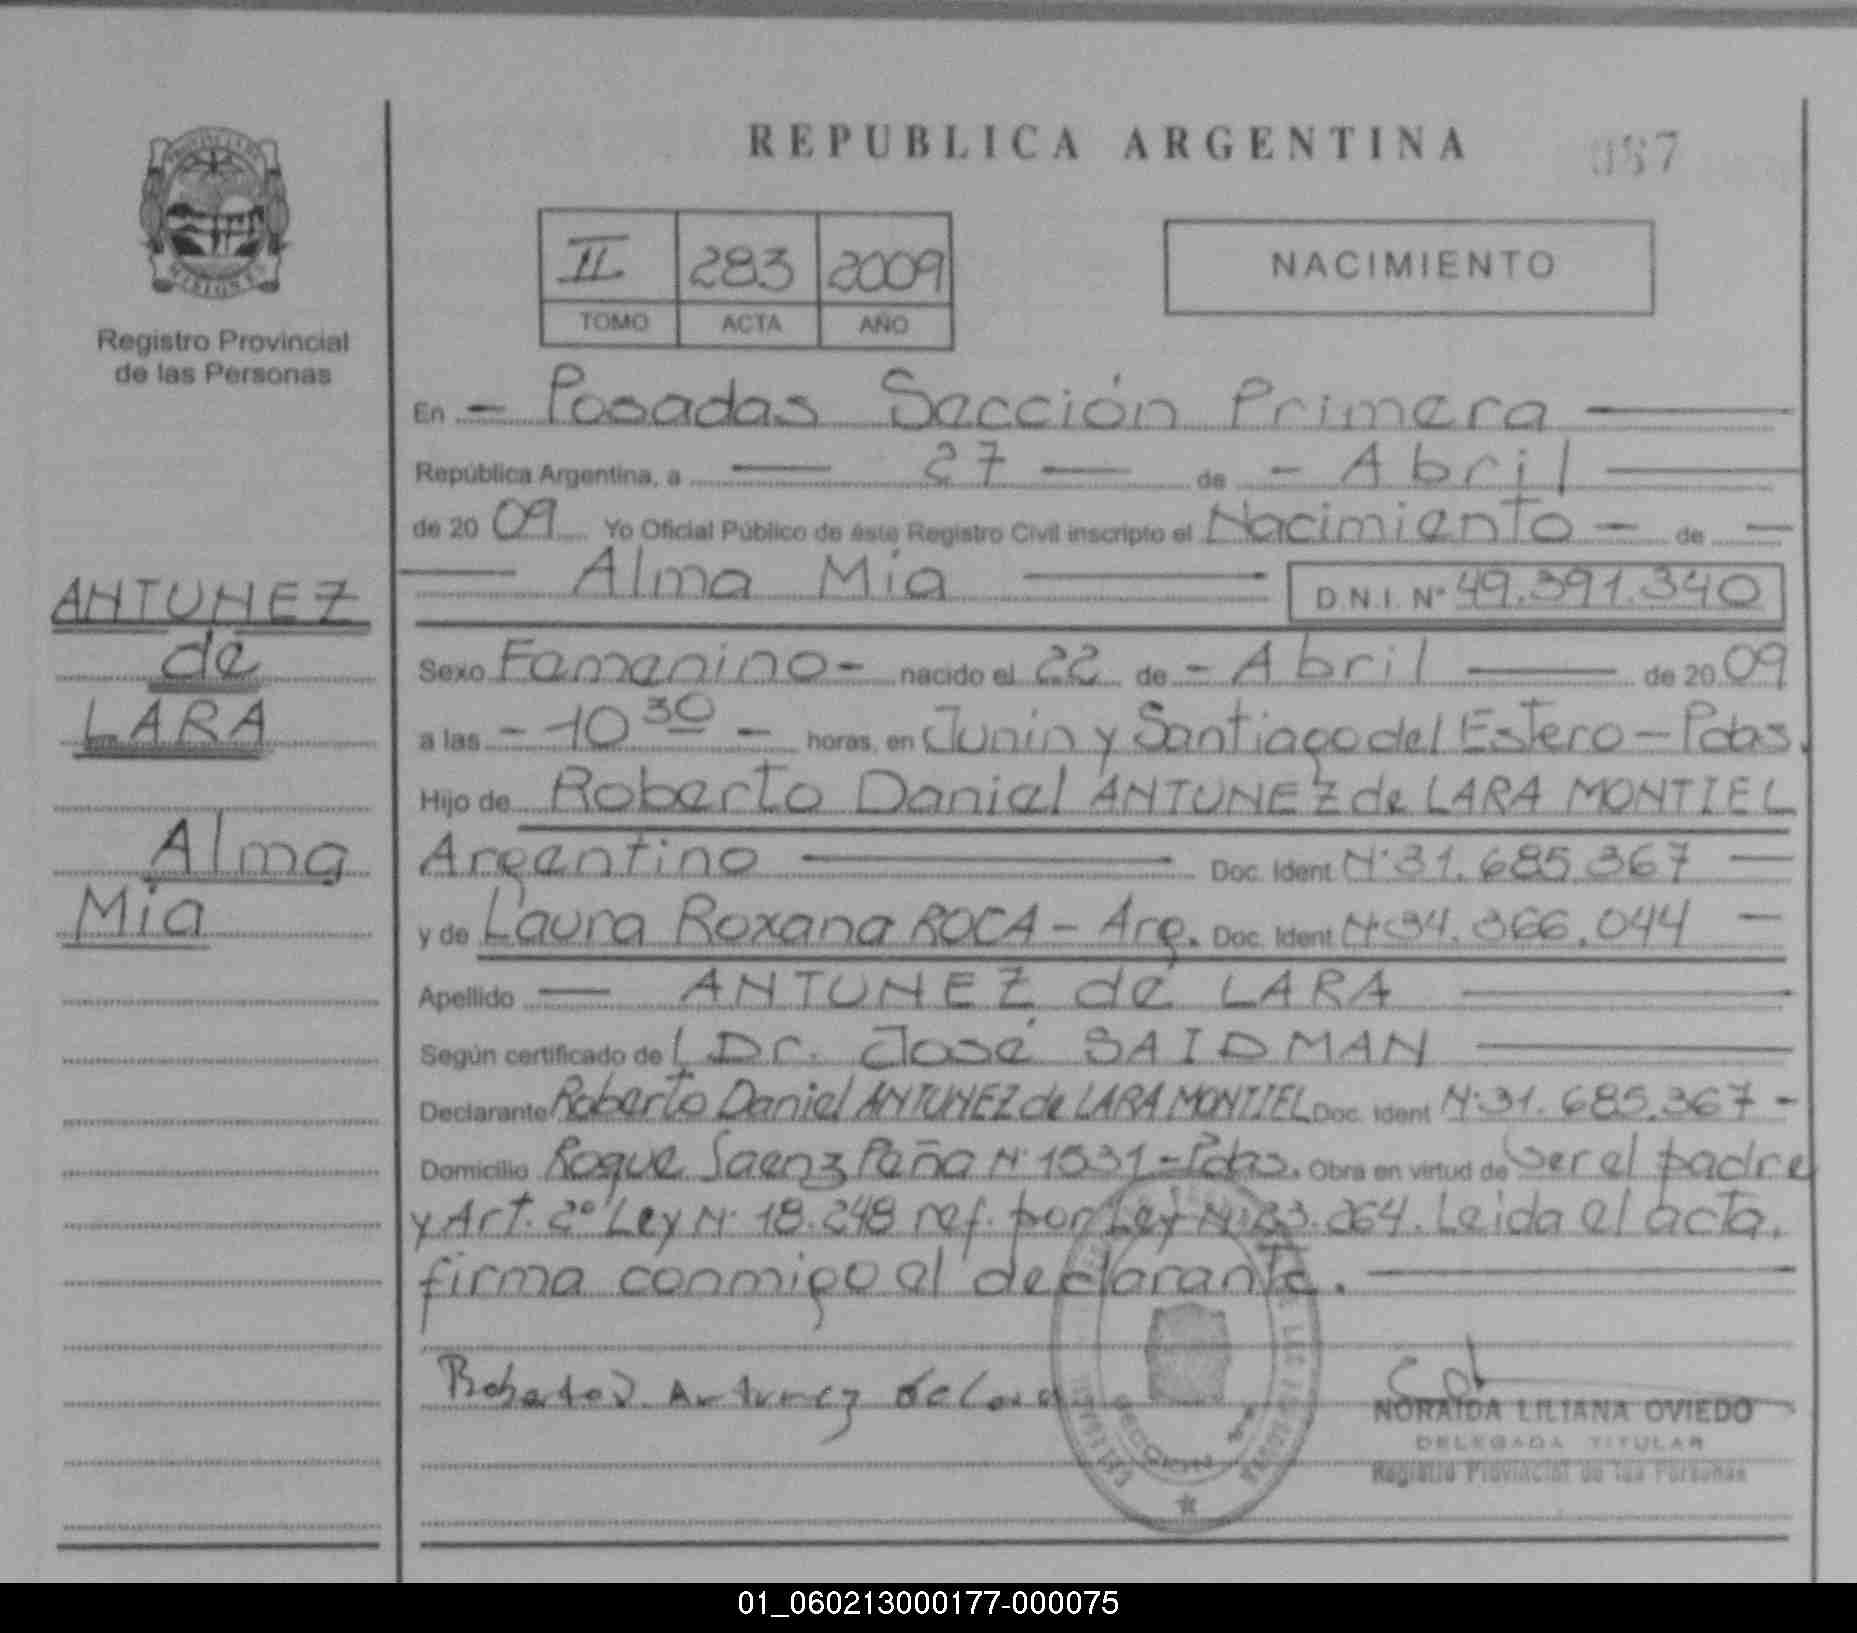 REPUBLICA ARGENTINA
II 283 2009
TOMO ACTA AÑO
NACIMIENTO
Registro Provincial
de las Personas
En - Posadas Sección Primera
República Argentina, a 27 de - Abril
de 20 09 Yo Oficial Público de éste Registro Civil inscripto el Nacimiento - de
Alma Mía D.N.I. Nº 49.391.340
ANTUNEZ
de
LARA
Alma
Mía
Sexo Femenino - nacido el 22 de - Abril de 20 09
a las - 10 30 - horas, en Junín y Santiago del Estero - Pdas.
Hijo de Roberto Daniel ANTUNEZ de LARA MONTIEL
Argentino Doc. Ident Nº 31.685.367
y de Laura Roxana ROCA - Arg. Doc. Ident Nº 34.366.044
Apellido ANTUNEZ de LARA
Según certificado de Dr. José SAIDMAN
Declarante Roberto Daniel ANTUNEZ de LARA MONTIEL Doc. Ident Nº 31.685.367 -
Domicilio Roque Saenz Peña Nº 1531 - Pdas. Obra en virtud de ser el padre
y Art. 2º Ley Nº 18.248 ref. por Ley Nº 23.264. Leida el acta,
firma conmigo el declarante.
Roberto D. Antunez de Lara
NORAIDA LILIANA OVIEDO
DELEGADA TITULAR
Registro Provincial de las Personas
SECCION 1ª
01_060213000177-000075